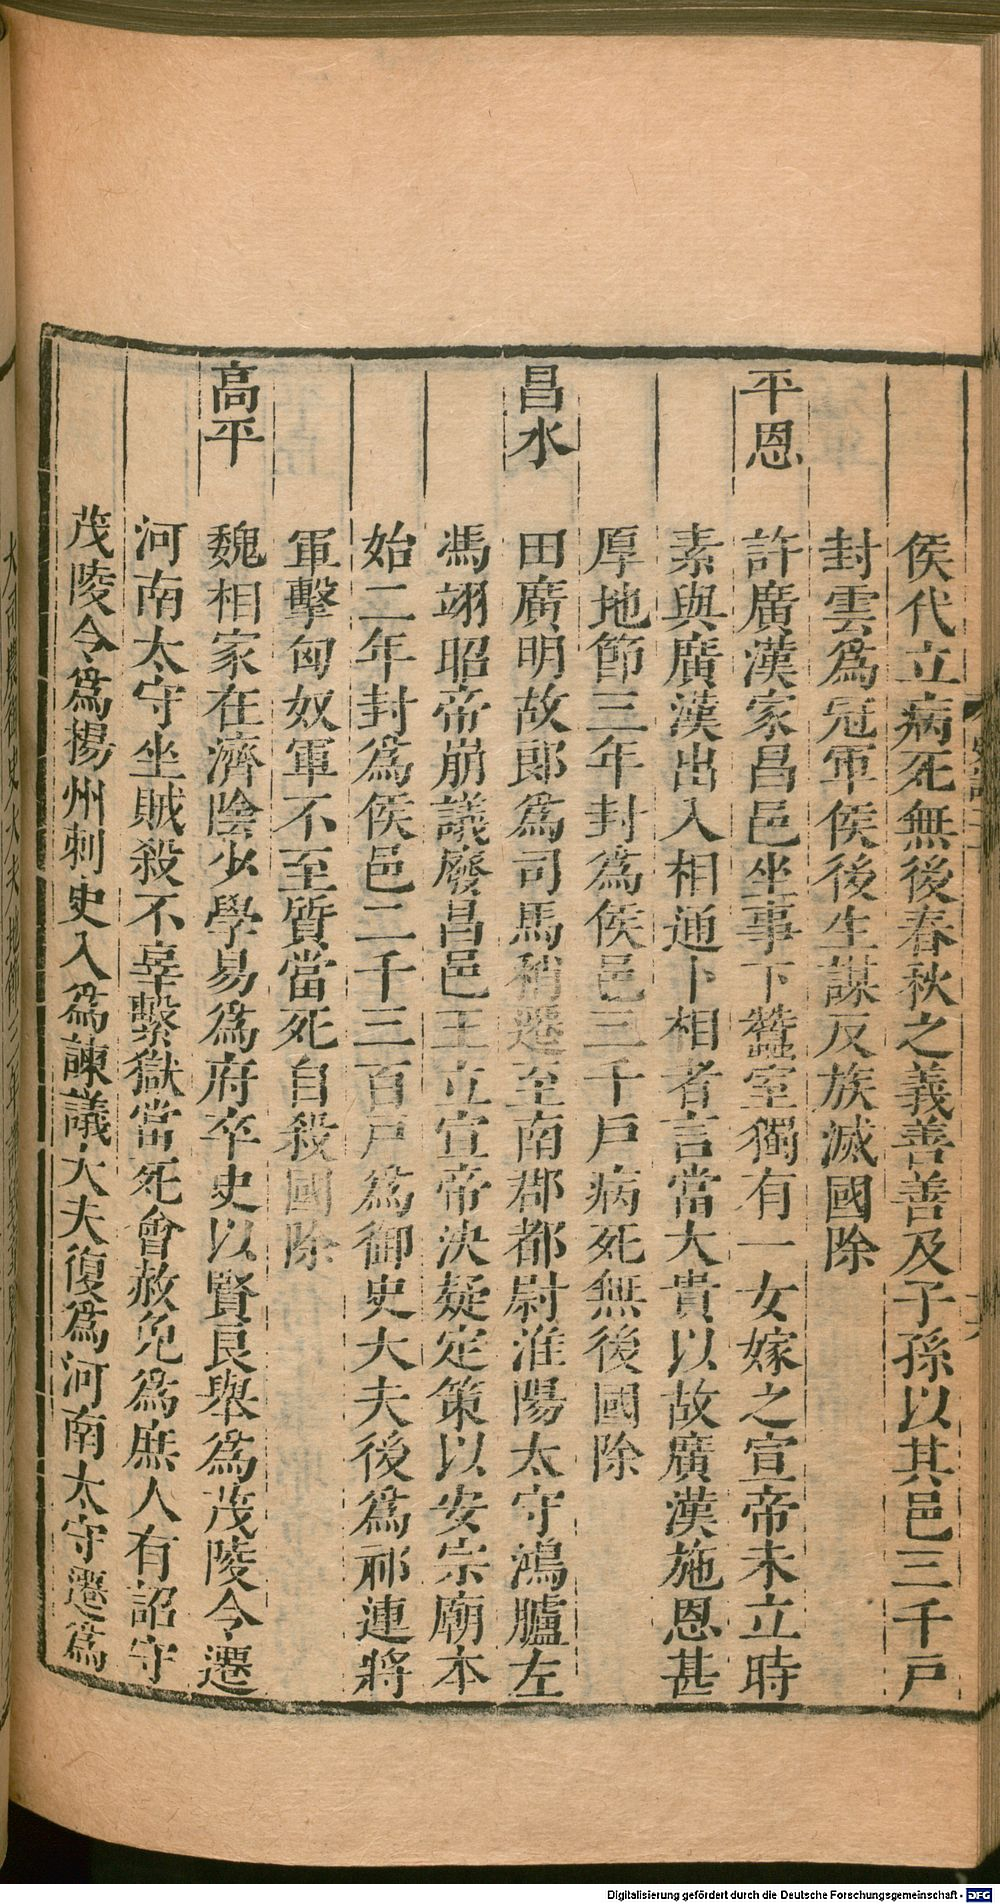 侯代立病死無後春秋之義善善及子孫以其邑三千戸
封雲爲冠軍侯後生謀反族滅國除
平恩
許廣漢家昌邑坐事下蠶室獨有一女嫁之宣帝未立時
素與廣漢出入相通卜相者言當大貴以故廣漢施恩甚
厚地節三年封爲侯邑三千戸病死無後國除
昌水
田廣明故郎爲司馬稍遷至南郡都尉淮陽太守鴻臚左
馮翊昭帝崩議廢昌邑王立宣帝決疑定策以安宗廟本
始二年封爲侯邑二千三百戸爲御史大夫後爲祁連將
軍擊匈奴軍不至質當死自殺國除
高平
魏相家在濟陰少學易爲府卒史以賢良舉爲茂陵令遷
河南太守坐賊殺不辜繫獄當死會赦免爲庶人有詔守
茂陵令爲楊州刺史入爲諫議大夫復爲河南太守遷爲
Digitalisierung gefördert durch die Deutsche Forschungsgemeinschaft - DFG